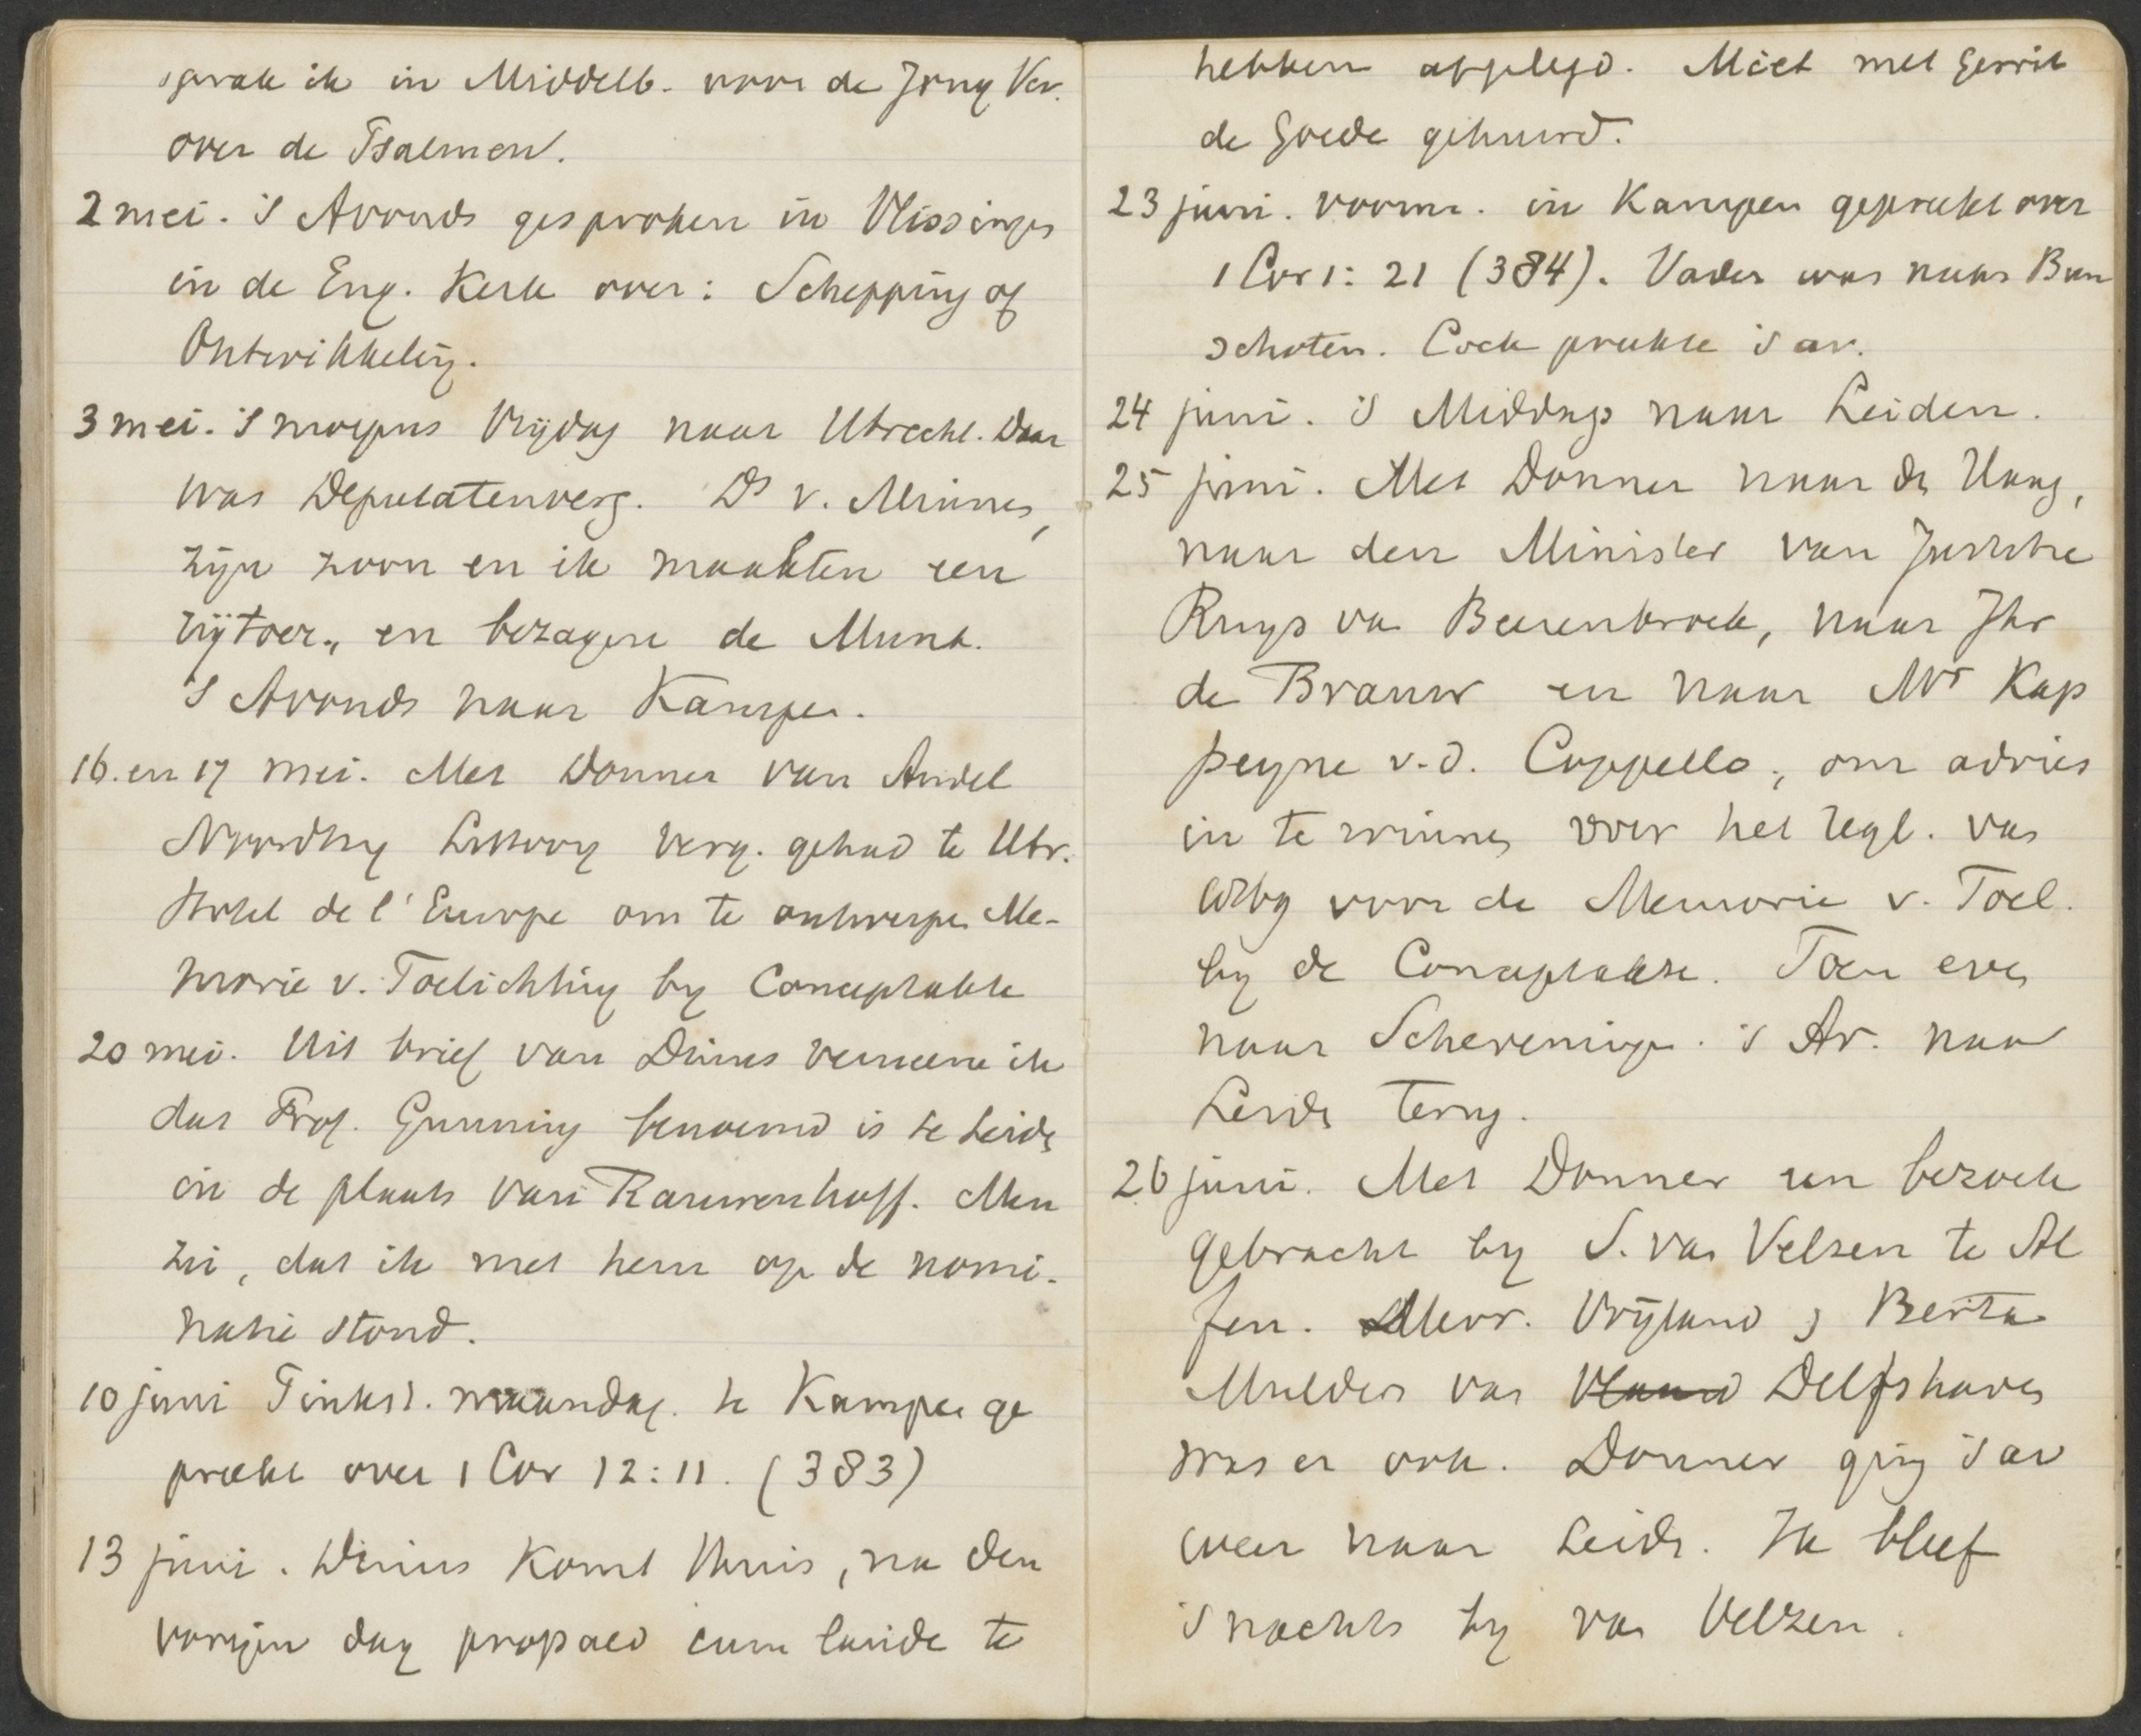 sprak ik in Middelb. voor de Jong Ver.
over de Psalmen.
2 mei. 's Avonds gesproken in Vlissingen
in de Eng. Kerk over: Schepping of
Ontwikkeling.
3 mei. 's morgens Vrijdag naar Utrecht. Daar
was Deputatenverg. Ds v. Minnen,
zijn zoon en ik maakten een
rijtoer, en bezagen de Munt.
's Avonds naar Kampen.
16. en 17 mei. Met Donner van Andel
Noordtzij Littooy verg. gehad te Utr.
Hotel de l'Europe om te ontwerpen Me-
morie v. Toelichting by Conceptakte
20 mei. Uit brief van Dinus verneem ik
dat Prof. Gunning benoemd is te Leiden
in de plaats van Rauwenhoff. Men
zei, dat ik met hem op de nomi-
natie stond.
10 juni Pinkst. maandag. te Kampen ge
preekt over 1 Cor 12:11. (383)
13 juni. Dinus komt thuis, na den
vorigen dag propaed cum laude te
hebben afgelegd. Miet met Gerrit
de Goede gehuwd.
23 juni. voorm. in Kampen gepreekt over
1 Cor 1: 21 (384). Vader was naar Bun
schoten. Cock preekte 's av.
24 juni. 's Middags naar Leiden.
25 juni. Met Donner naar den Haag,
naar den Minister van Justitie
Ruys van Beerenbroek, naar Jhr
de Brauw en naar Mr Kap
peyne v.d. Coppello, om advies
in te winnen over het regl. van
1869 voor de Memorie v. Toel.
by de Conceptakte. Toen even
naar Scheveningen. 's Av. naar
Leiden terug.
26 juni. Met Donner een bezoek
gebracht by S. van Velzen te Al
fen. Mevr. Vrijland & Berta
Mulder van Delfshaven
was er ook. Donner ging 's av
weer naar Leiden. Ik bleef
's nachts by van Velzen.